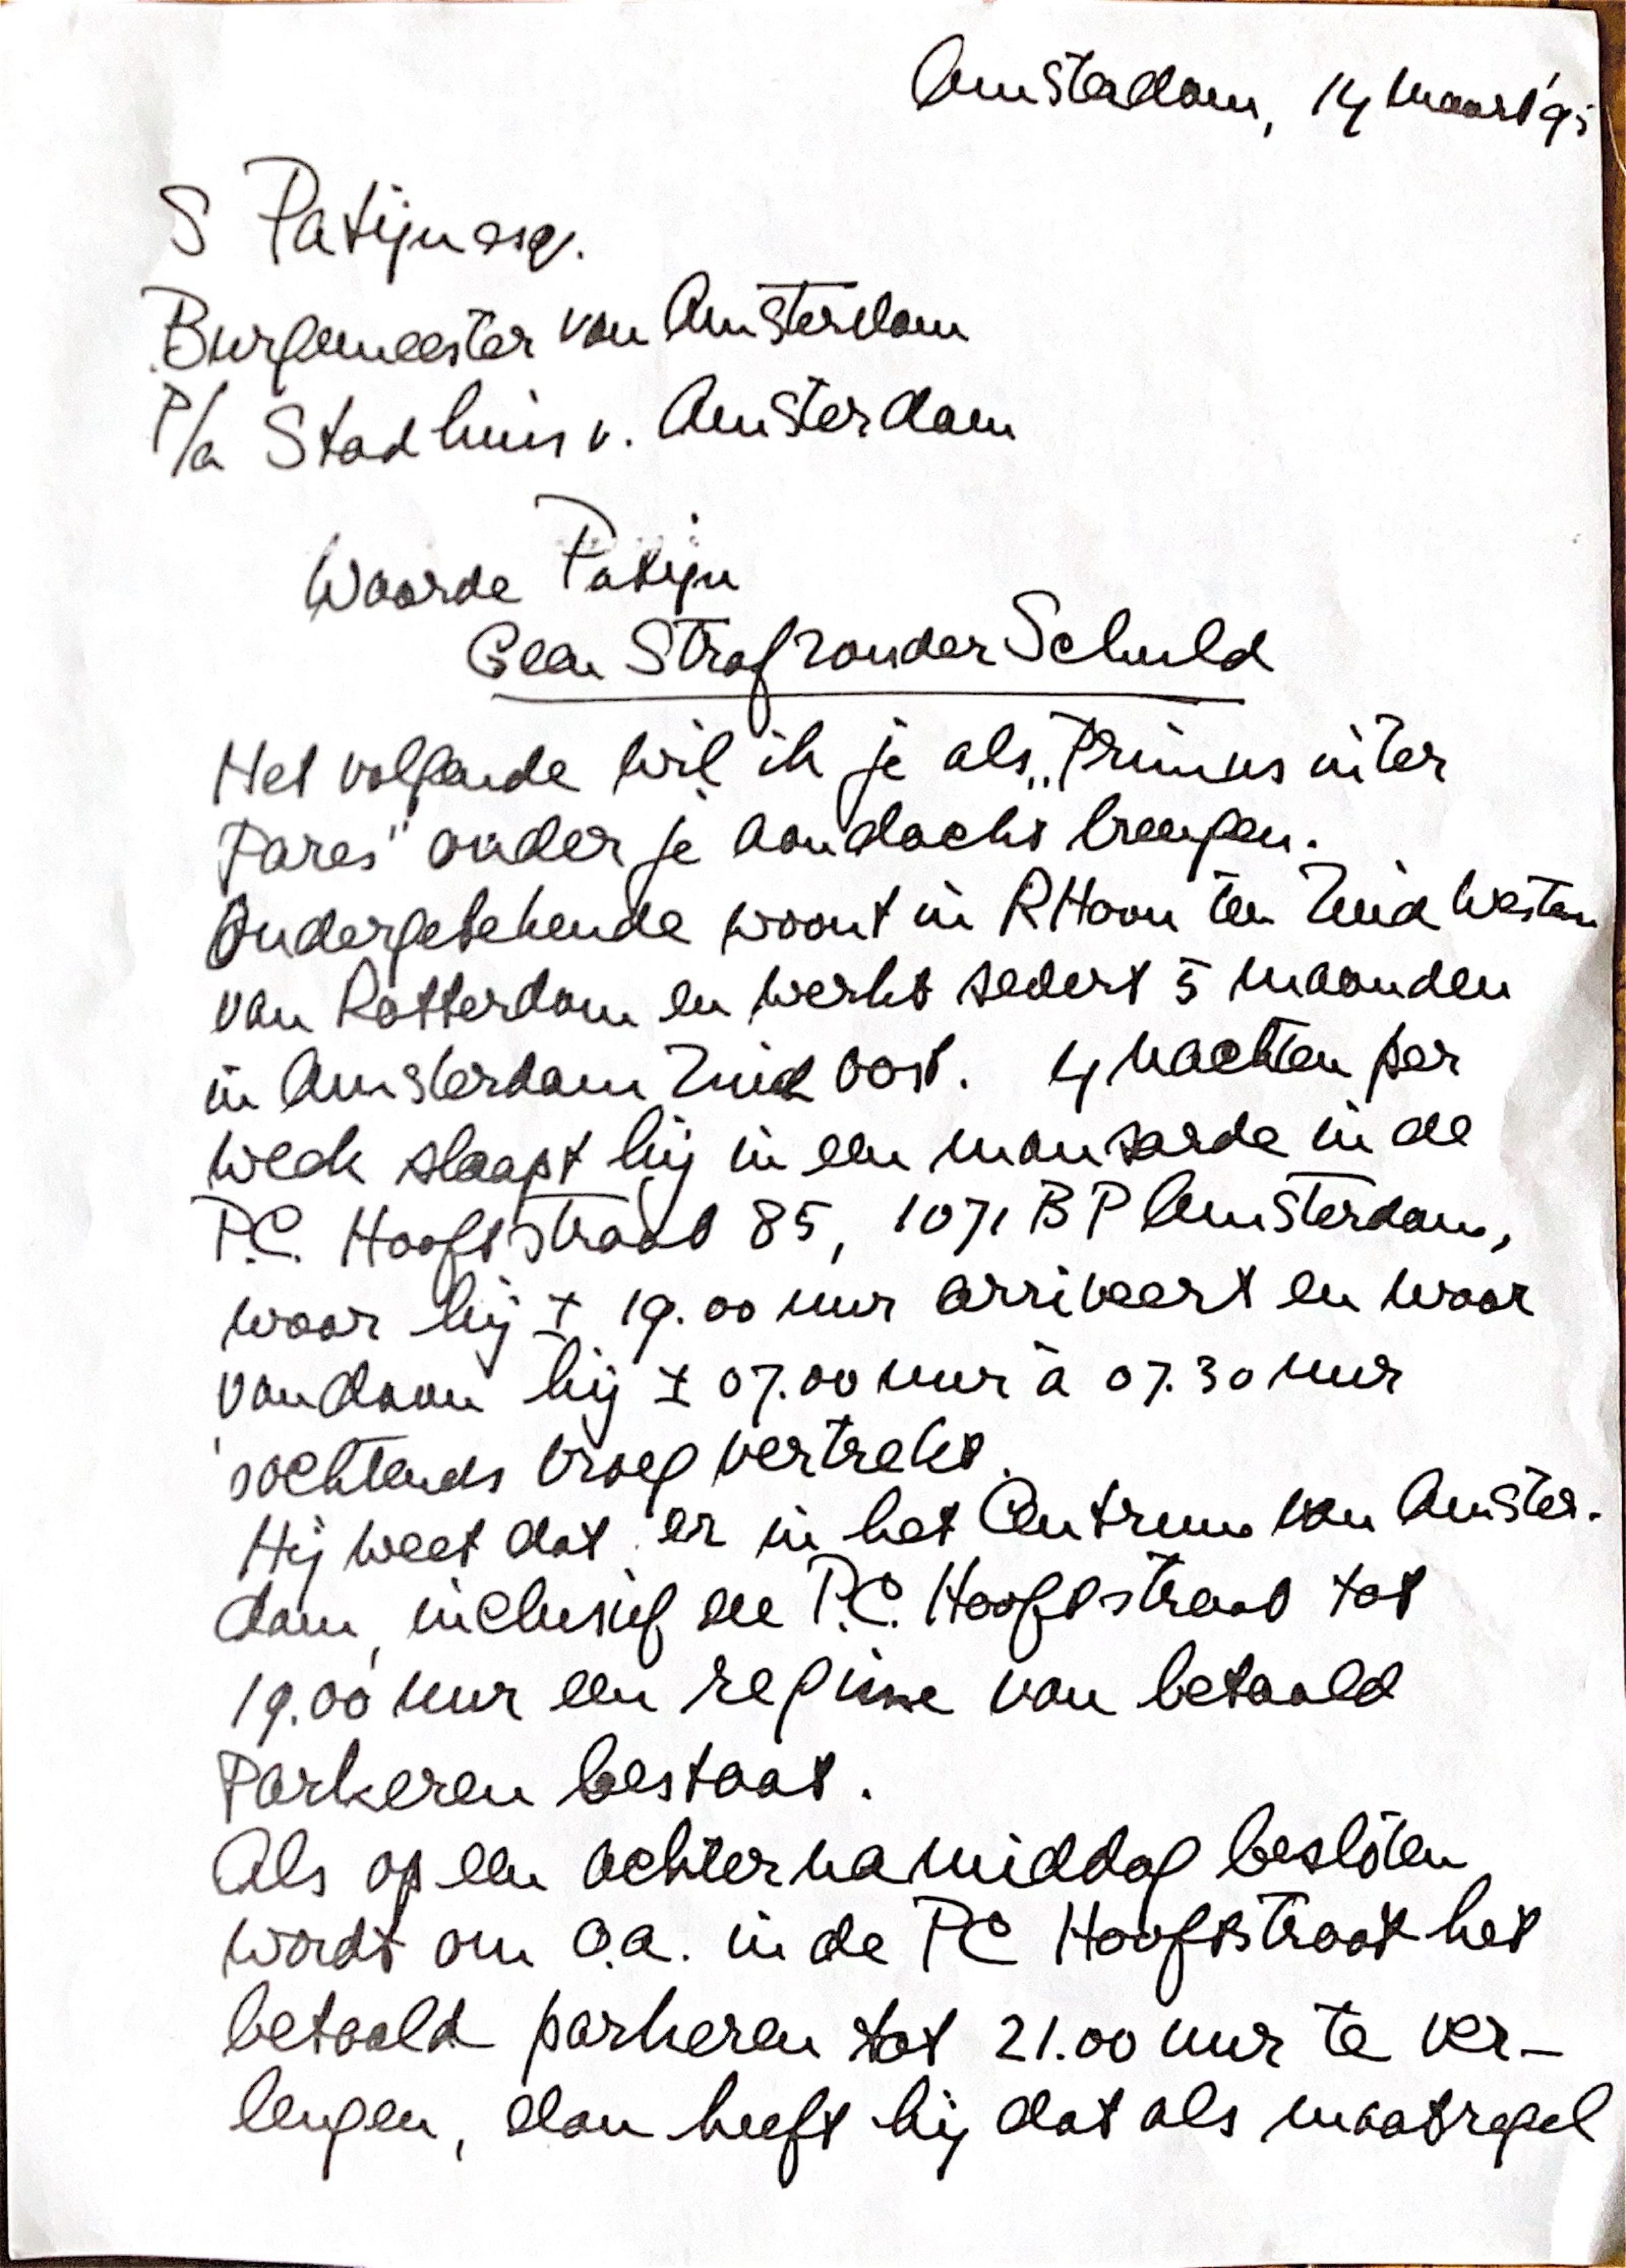 Amsterdam, 14 maart '95
S Patijn esq.
Burgemeester van Amsterdam
P/a Stadhuis v. Amsterdam
Waarde Patijn
Geen Straf zonder Schuld
Het volgende wil ik je als „Primus inter
Pares" onder je aandacht brengen.
Ondergetekende woont in RHoon ten Zuid Westen
van Rotterdam en werkt sedert 5 maanden
in Amsterdam Zuid Oost. 4 nachten per
week slaapt hij in een mansarde in de
P.C. Hooftstraat 85, 1071 BP Amsterdam,
waar hij ± 19.00 uur arriveert en waar
vandaan hij ± 07.00 uur à 07.30 uur
'sochtends vroeg vertrekt.
Hij weet dat er in het Centrum van Amster-
dam, inclusief de P.C. Hooftstraat tot
19.00 uur een regime van betaald
Parkeren bestaat.
Als op een achternamiddag besloten
wordt om o.a. in de PC Hooftstraat het
betaald parkeren tot 21.00 uur te ver-
lengen, dan heeft hij dat als maatregel